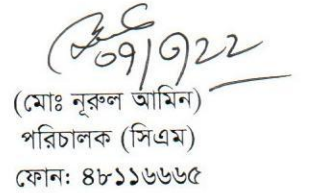 ০৭/৩/২২
(মোঃ নূরুল আমিন)
পরিচালক (সিএম)
ফোন: ৪৮১১৬৬৬৫